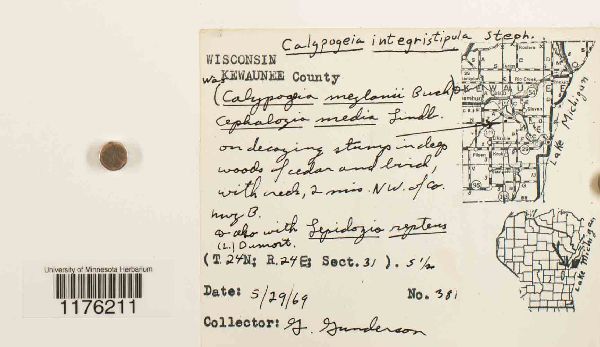 Calypogeia integristipula Steph.
WISCONSIN
was KEWAUNEE County
(Calypogeia meylanii Buch)
Cephalozia media Lindb.
on decaying stump in deep
woods of cedar and birch,
with creek, 2 mis. N.W. of Co.
hwy B.
also with Lepidozia reptans
(L.) Dumort.
(T.24N; R.24E; Sect.31 ). S 1/2
Date: 5/29/69 No. 381
Collector: G. Gunderson
Lake Michigan
Lake Michigan
University of Minnesota Herbarium
1176211